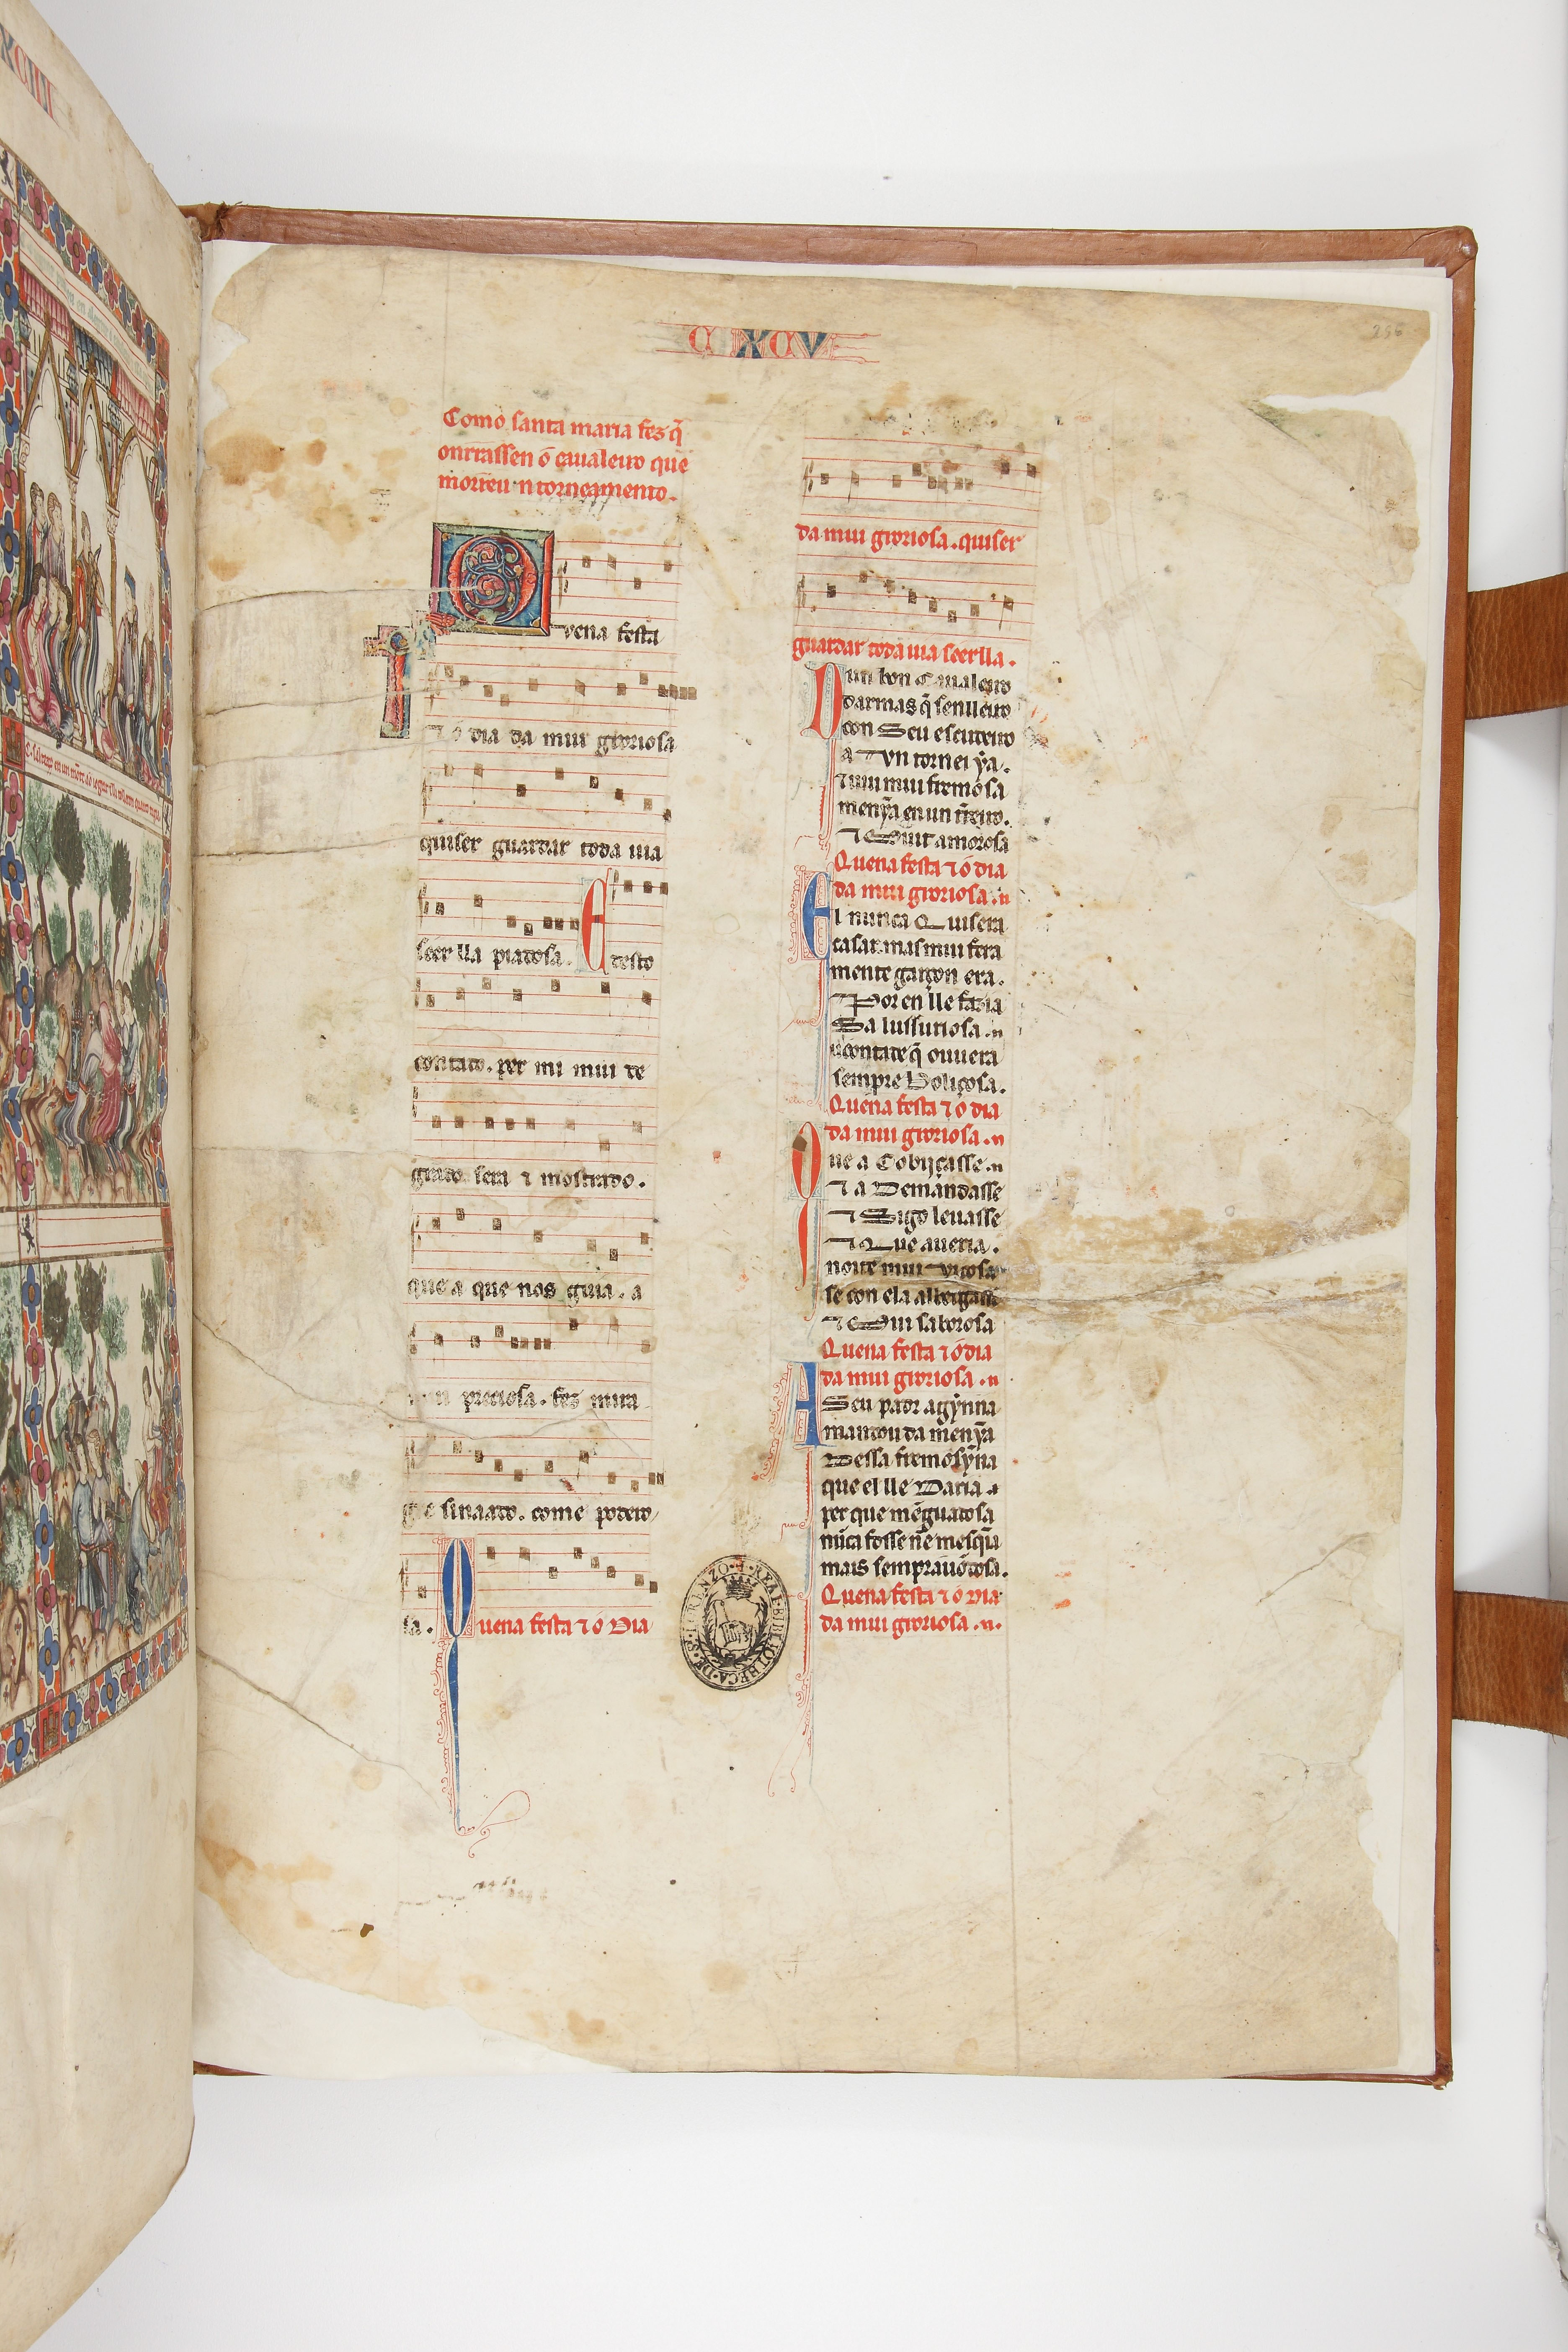 XCIII
C XCV
256
Como santa maria fez q̃
onrrassen o caualeiro que
morreu n torneamento.
Quena festa
⁊ o dia da mui groriosa
quiser guardar toda uia
seer lla piadosa. E desto
contado. per mi mui de
grado sera ⁊ mostrado.
que a que nos guia. a
preciosa. fez mira
sinaado. come podero
sa. Quena festa ⁊ o Dia
da mui groriosa. quiser
guardar toda uia seerlla.
Dun bon Caualeiro
darmas q̃ senlleiro
con Seu escudeiro
a Vn tornei ỹa.
⁊ uiu mui fremosa
menỹa en un ñeiro.
⁊ Mui amorosa
Quena festa ⁊ o dia
da mui groriosa. n
El nunca Quisera
casar. mas mui fera
mente garçon era.
Por en lle fazia
Sa lussuriosa. n
uoontade q̃ ouuera
sempre Voliçosa.
Quena festa ⁊ o dia
da mui groriosa. n
Que a Cobijçasse. n
⁊ a Demandasse
⁊ Sigo leuasse
⁊ Que aueria.
noite mui viçosa
se con ela albergasse
⁊ Mui saborosa
Quena festa ⁊ o dia
da mui groriosa. n
A Seu padr agỹnna
mandou da menỹa
Dessa fremosỹna
que el lle Daria.
per que mẽguadosa
nũca fosse nẽ mesqỹa
mais sempr auõdosa.
Quena festa ⁊ o Dia
da mui groriosa. n.
REAL BIBLIOTECA DE S. LORENZO